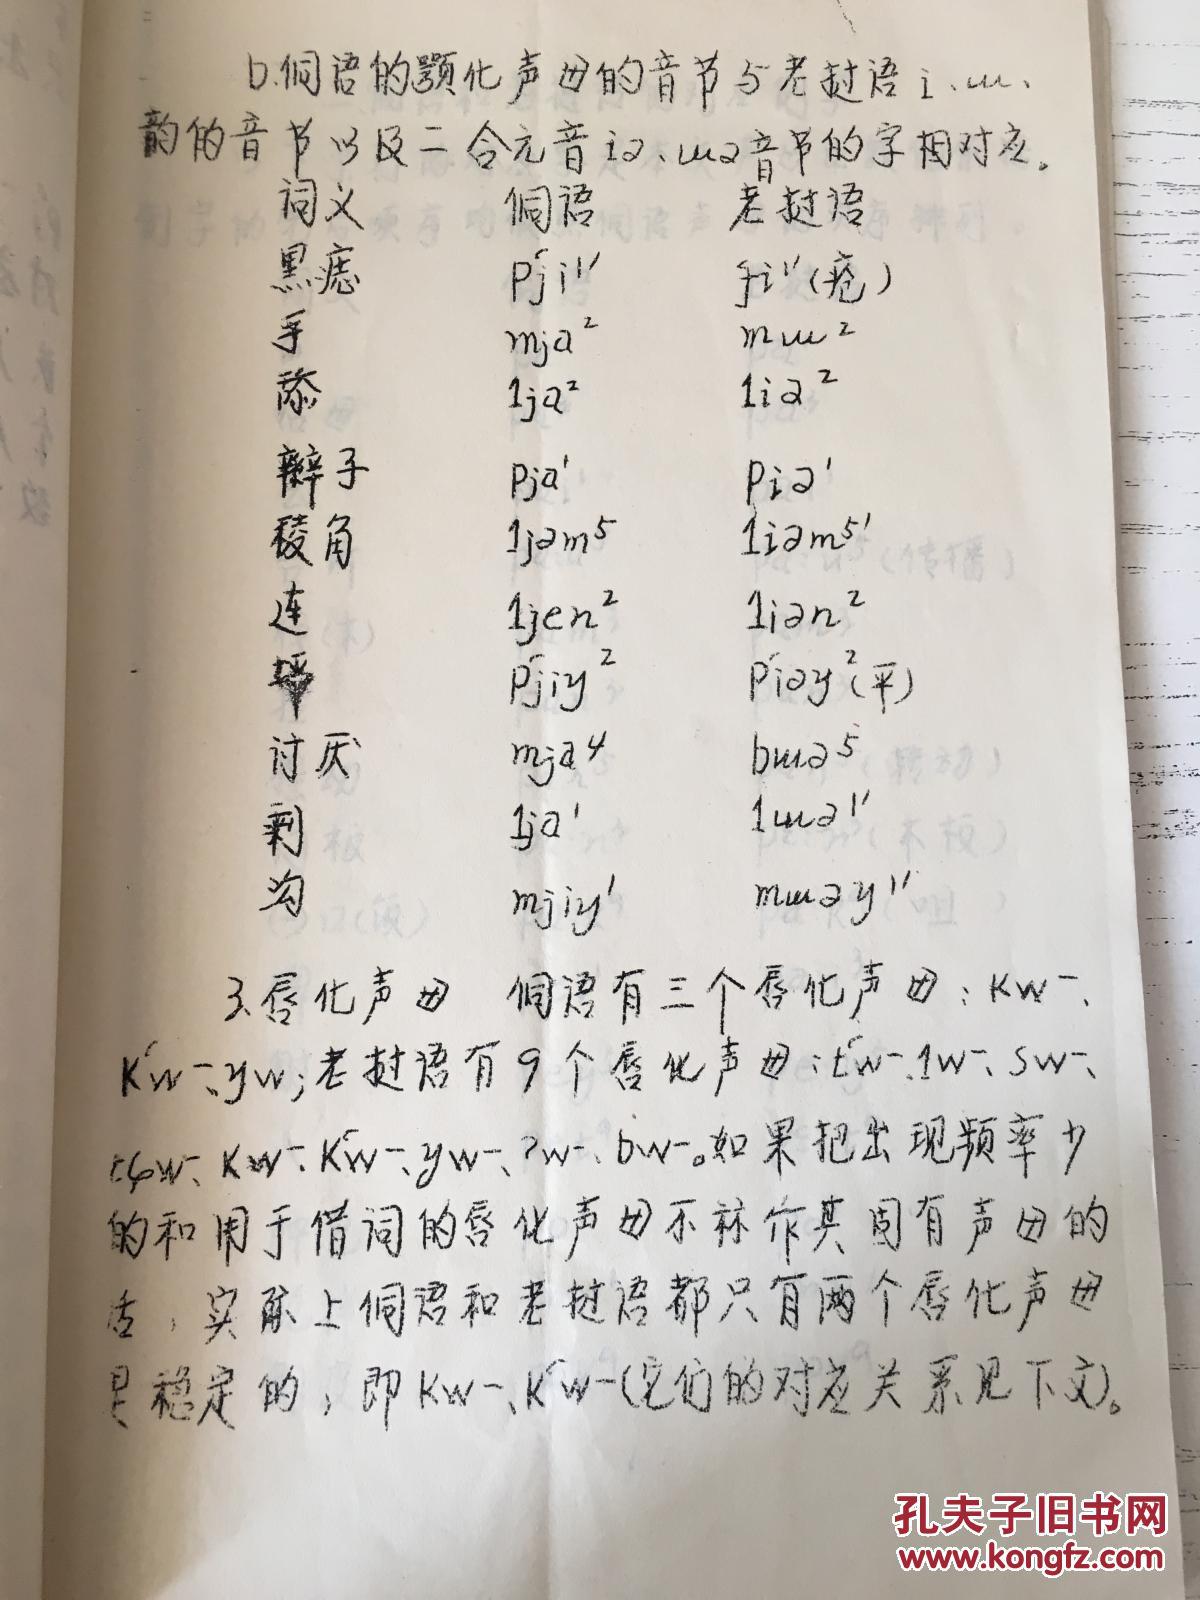 b.侗语的颚化声母的音节与老挝语i、ɯ、
韵的音节以及二合元音iə、ɯə音节的字相对应。
词义 侗语 老挝语
黑痣 pʻji1′ fi1′(疮)
手 mja2 mɯ2
舔 lja2 liə2
辫子 pja1 piə1
稜角 ljəm5 liəm5′
连 ljen2 liən2
坪 pʻjiŋ2 pʻiəŋ2(平)
讨厌 mja4 bɯə5
剩 lja1 lɯə1′
沟 mjiŋ1 mɯəŋ1′
3.唇化声母 侗语有三个唇化声母:kw-、
kʻw-、ŋw;老挝语有9个唇化声母:tʻw-、lw-、sw-、
tɕw-、kw-、kʻw-、ŋw-、ʔw-、bw-。如果把出现频率少
的和用于借词的唇化声母不袜作其固有声母的
话,实际上侗语和老挝语都只有两个唇化声母
是稳定的,即kw-、kʻw-(它们的对应关系见下文)。
孔夫子旧书网
www.kongfz.com